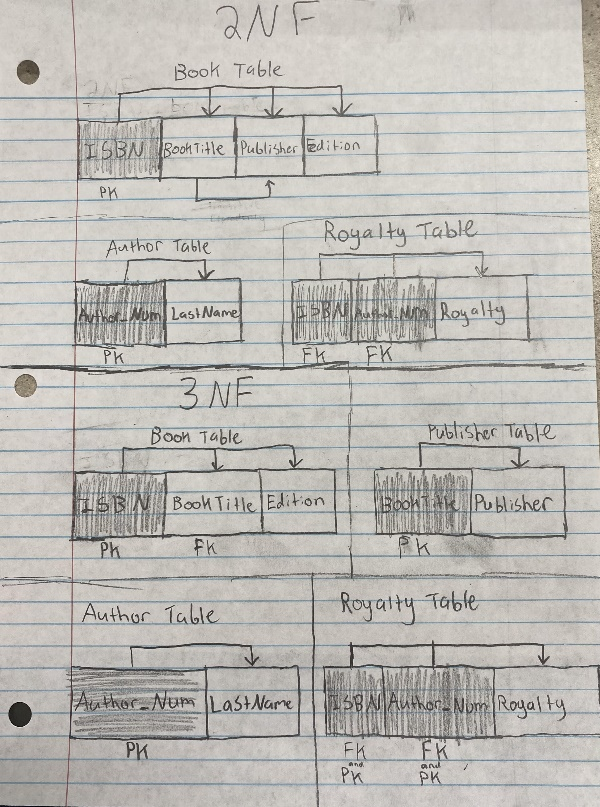 2NF
Book Table
ISBN BookTitle Publisher Edition
PK
Author Table
Author_Num LastName
PK
Royalty Table
ISBN Author_Num Royalty
FK FK
3NF
Book Table
ISBN BookTitle Edition
PK FK
Publisher Table
BookTitle Publisher
PK
Author Table
Author_Num LastName
PK
Royalty Table
ISBN Author_Num Royalty
FK FK
and and
PK PK